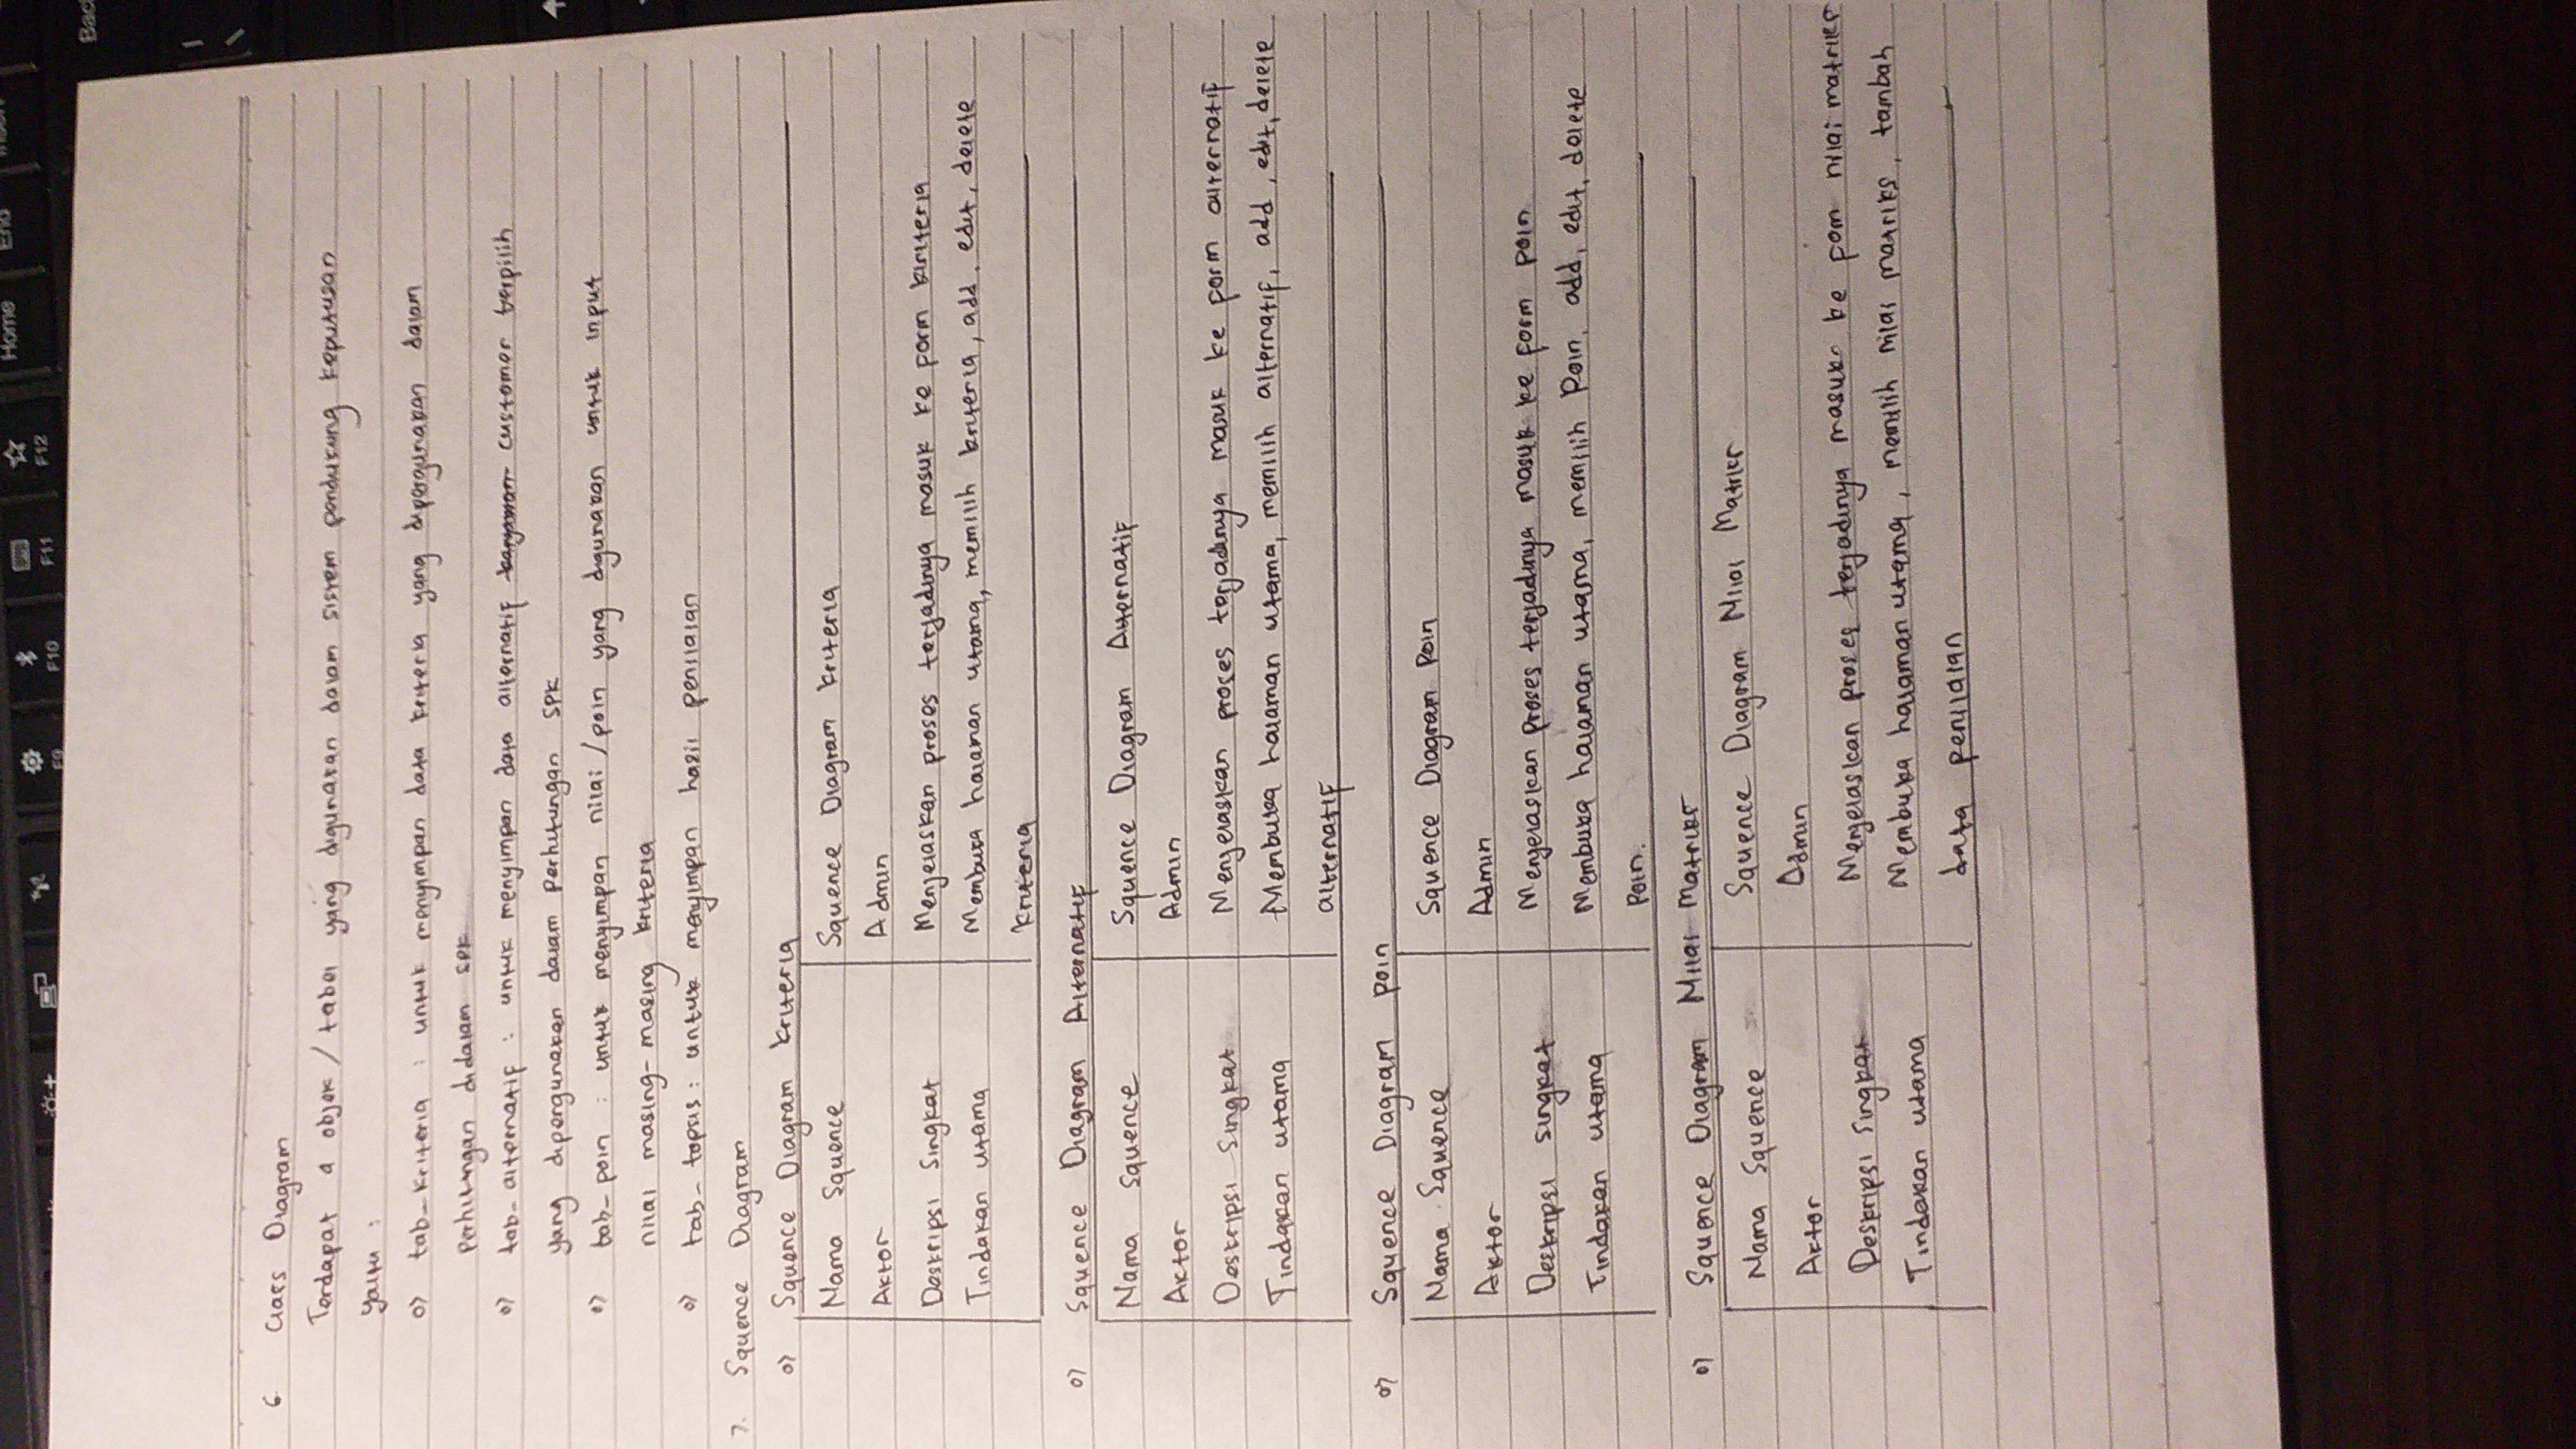 F9 F10 F11 F12 Home End Insert
Bac
6. Class Diagram
Terdapat 4 objek / tabel yang digunakan dalam sistem pendukung keputusan
yaitu :
o) tab_kriteria : untuk menyimpan data kriteria yang dipergunakan dalam
perhitungan didalam SPK
o) tab_alternatif : untuk menyimpan data alternatif customer terpilih
yang dipergunakan dalam perhitungan SPK
o) tab_poin : untuk menyimpan nilai / poin yang digunakan untuk input
nilai masing-masing kriteria
o) tab_topsis : untuk menyimpan hasil penilaian
7. Squence Diagram
o) Squence Diagram Kriteria
Nama Squence Squence Diagram Kriteria
Aktor Admin
Deskripsi Singkat Menjelaskan proses terjadinya masuk ke form kiriteria
Tindakan utama Membuka halaman utama, memilih kriteria, add, edit, delete
kriteria
o) Squence Diagram Alternatif
Nama Squence Squence Diagram Alternatif
Aktor Admin
Deskripsi Singkat Menjelaskan proses terjadinya masuk ke form alternatif
Tindakan utama Membuka halaman utama, memilih alternatif, add, edit, delete
alternatif
o) Squence Diagram poin
Nama Squence Squence Diagram Poin
Aktor Admin
Deskripsi singkat Menjelaskan proses terjadinya masuk ke form poin
Tindakan utama Membuka halaman utama, memilih Poin, add, edit, delete
Poin.
o) Squence Diagram Nilai Matriks
Nama Squence Squence Diagram Nilai Matriks
Aktor Admin
Deskripsi Singkat Menjelaskan proses terjadinya masuk ke fom nilai matriks
Tindakan utama Membuka halaman utama, memilih nilai matriks, tambah
data penilaian